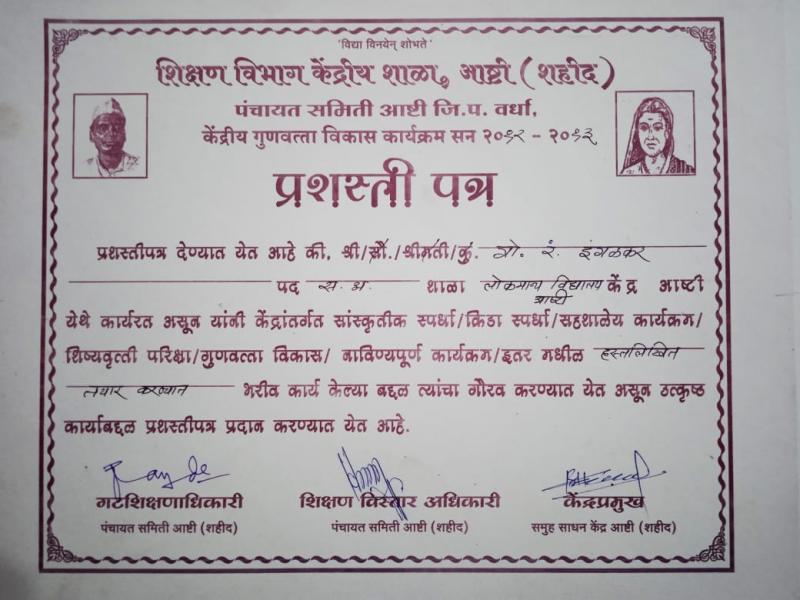 'विद्या विनयेन् शोभते'
शिक्षण विभाग केंद्रीय शाळा, आष्टी (शहीद)
पंचायत समिती आष्टी जि.प. वर्धा,
केंद्रीय गुणवत्ता विकास कार्यक्रम सन २०१२ - २०१३
प्रशस्ती पत्र
प्रशस्तीपत्र देण्यात येत आहे की, श्री/सौ./श्रीमती/कु. गो. रं. इंगळकर
पद स. अ. शाळा लोकमान्य विद्यालय केंद्र आष्टी
आष्टी
येथे कार्यरत असून यांनी केंद्रांतर्गत सांस्कृतीक स्पर्धा/क्रिडा स्पर्धा/सहशालेय कार्यक्रम/
शिष्यवृत्ती परिक्षा/गुणवत्ता विकास/ नाविण्यपूर्ण कार्यक्रम/इतर मधील हस्तलिखित
तयार करण्यात भरीव कार्य केल्या बद्दल त्यांचा गौरव करण्यात येत असून उत्कृष्ठ
कार्याबद्दल प्रशस्तीपत्र प्रदान करण्यात येत आहे.
गटशिक्षणाधिकारी शिक्षण विस्तार अधिकारी केंद्रप्रमुख
पंचायत समिती आष्टी (शहीद) पंचायत समिती आष्टी (शहीद) समुह साधन केंद्र आष्टी (शहीद)